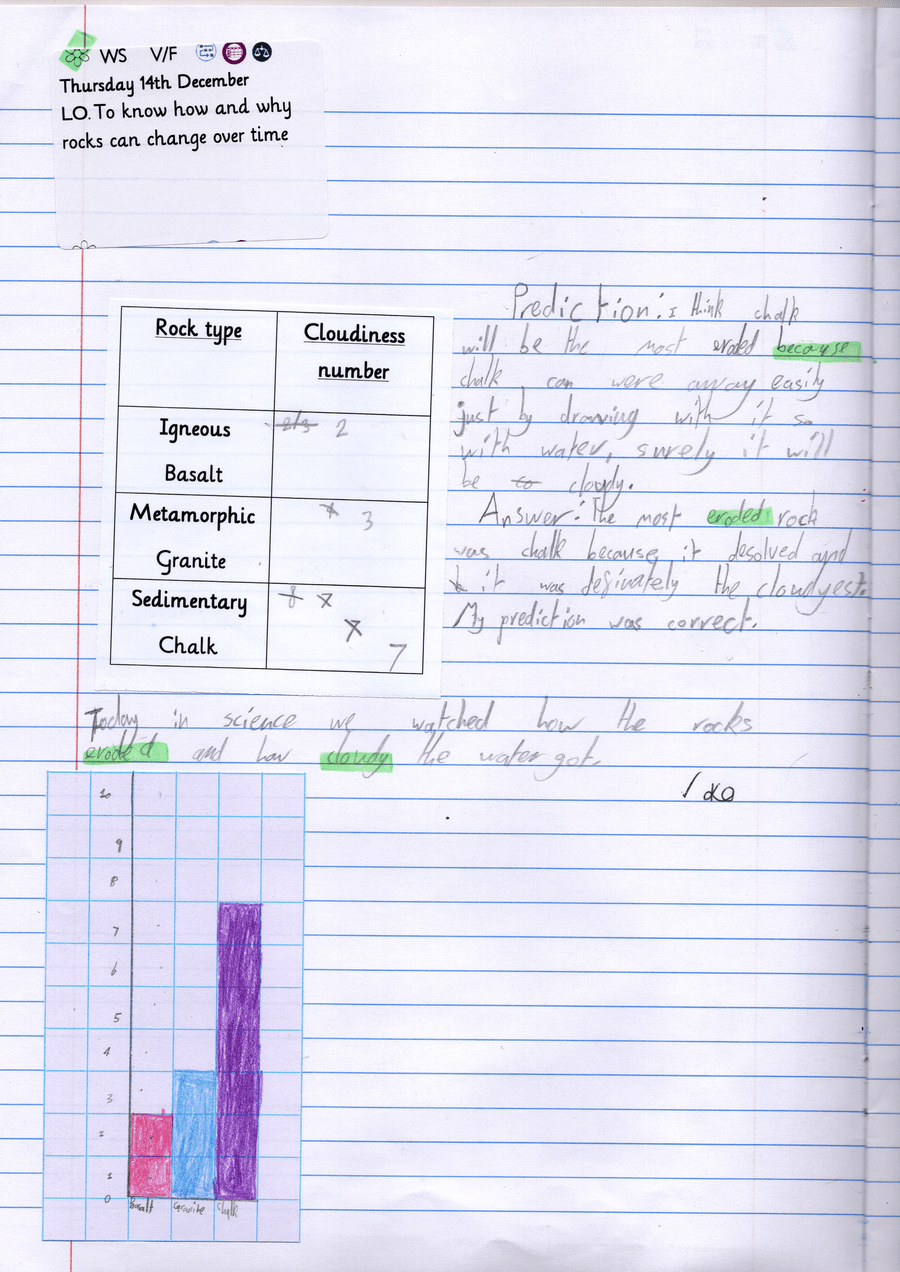 WS V/F
Thursday 14th December
LO. To know how and why
rocks can change over time
Rock type
Cloudiness
number
Igneous
Basalt
2/3 2
Metamorphic
Granite
3
Sedimentary
Chalk
8
7
Prediction: I think chalk
will be the most eroded because
chalk can were away easily
just by drawing with it so
with water, surely it will
be to cloudy.
Answer: The most eroded rock
was chalk because it desolved and
it was definately the cloudyest.
My prediction was correct.
Today in science we watched how the rocks
eroded and how cloudy the water got.
10
9
8
7
6
5
4
3
2
1
0
Basalt Granite Chalk